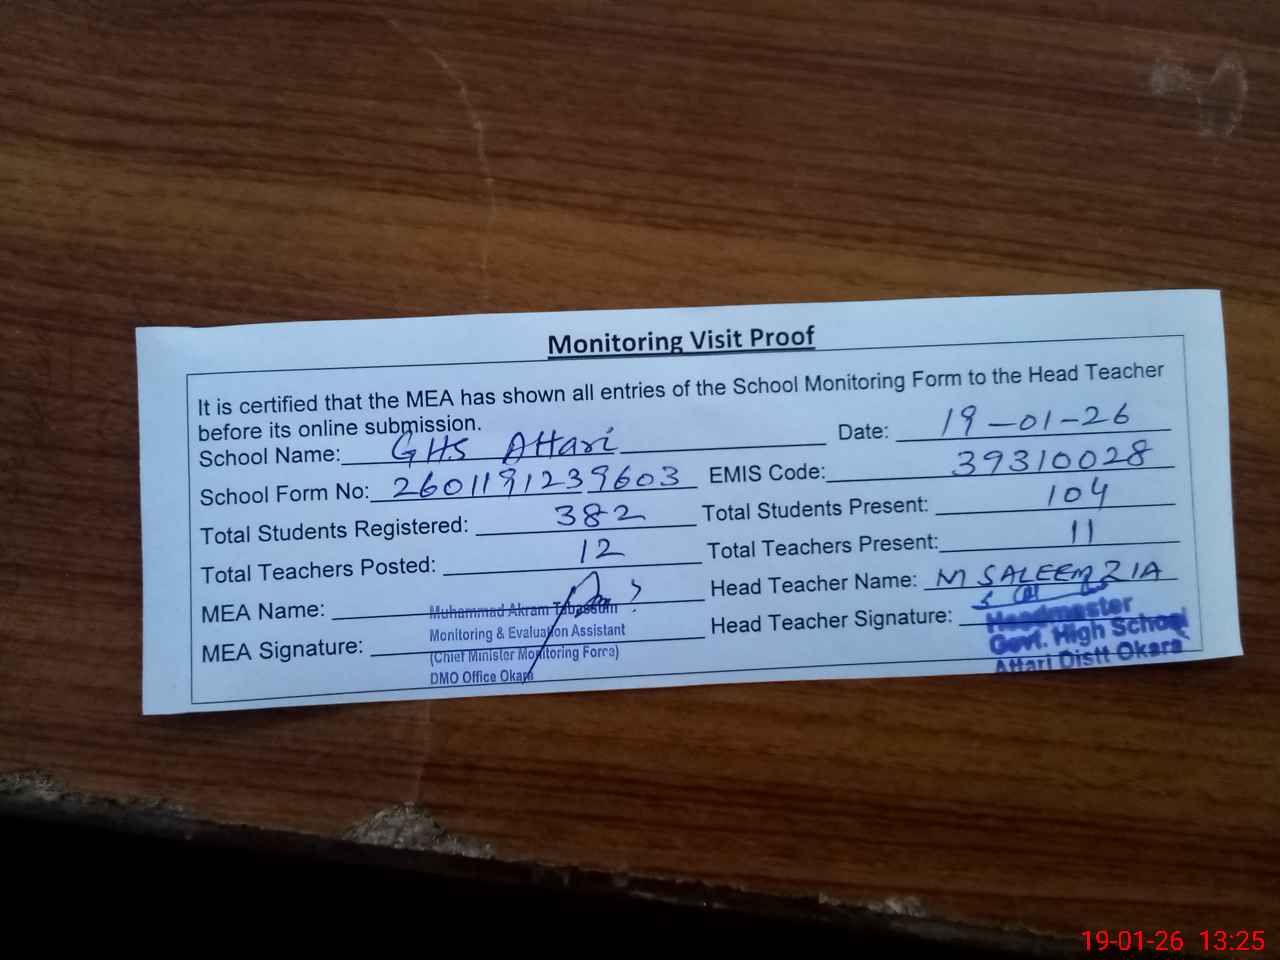 Monitoring Visit Proof
It is certified that the MEA has shown all entries of the School Monitoring Form to the Head Teacher
before its online submission.
School Name: GHS Attari Date: 19-01-26
School Form No: 2601191239603 EMIS Code: 39310028
Total Students Registered: 382 Total Students Present: 104
Total Teachers Posted: 12 Total Teachers Present: 11
MEA Name: Muhammad Akram Tabassum Head Teacher Name: M SALEEM ZIA
Monitoring & Evaluation Assistant
MEA Signature: Head Teacher Signature:
(Chief Minister Monitoring Force)
DMO Office Okara
Headmaster
Govt. High School
Attari Distt Okara
19-01-26 13:25